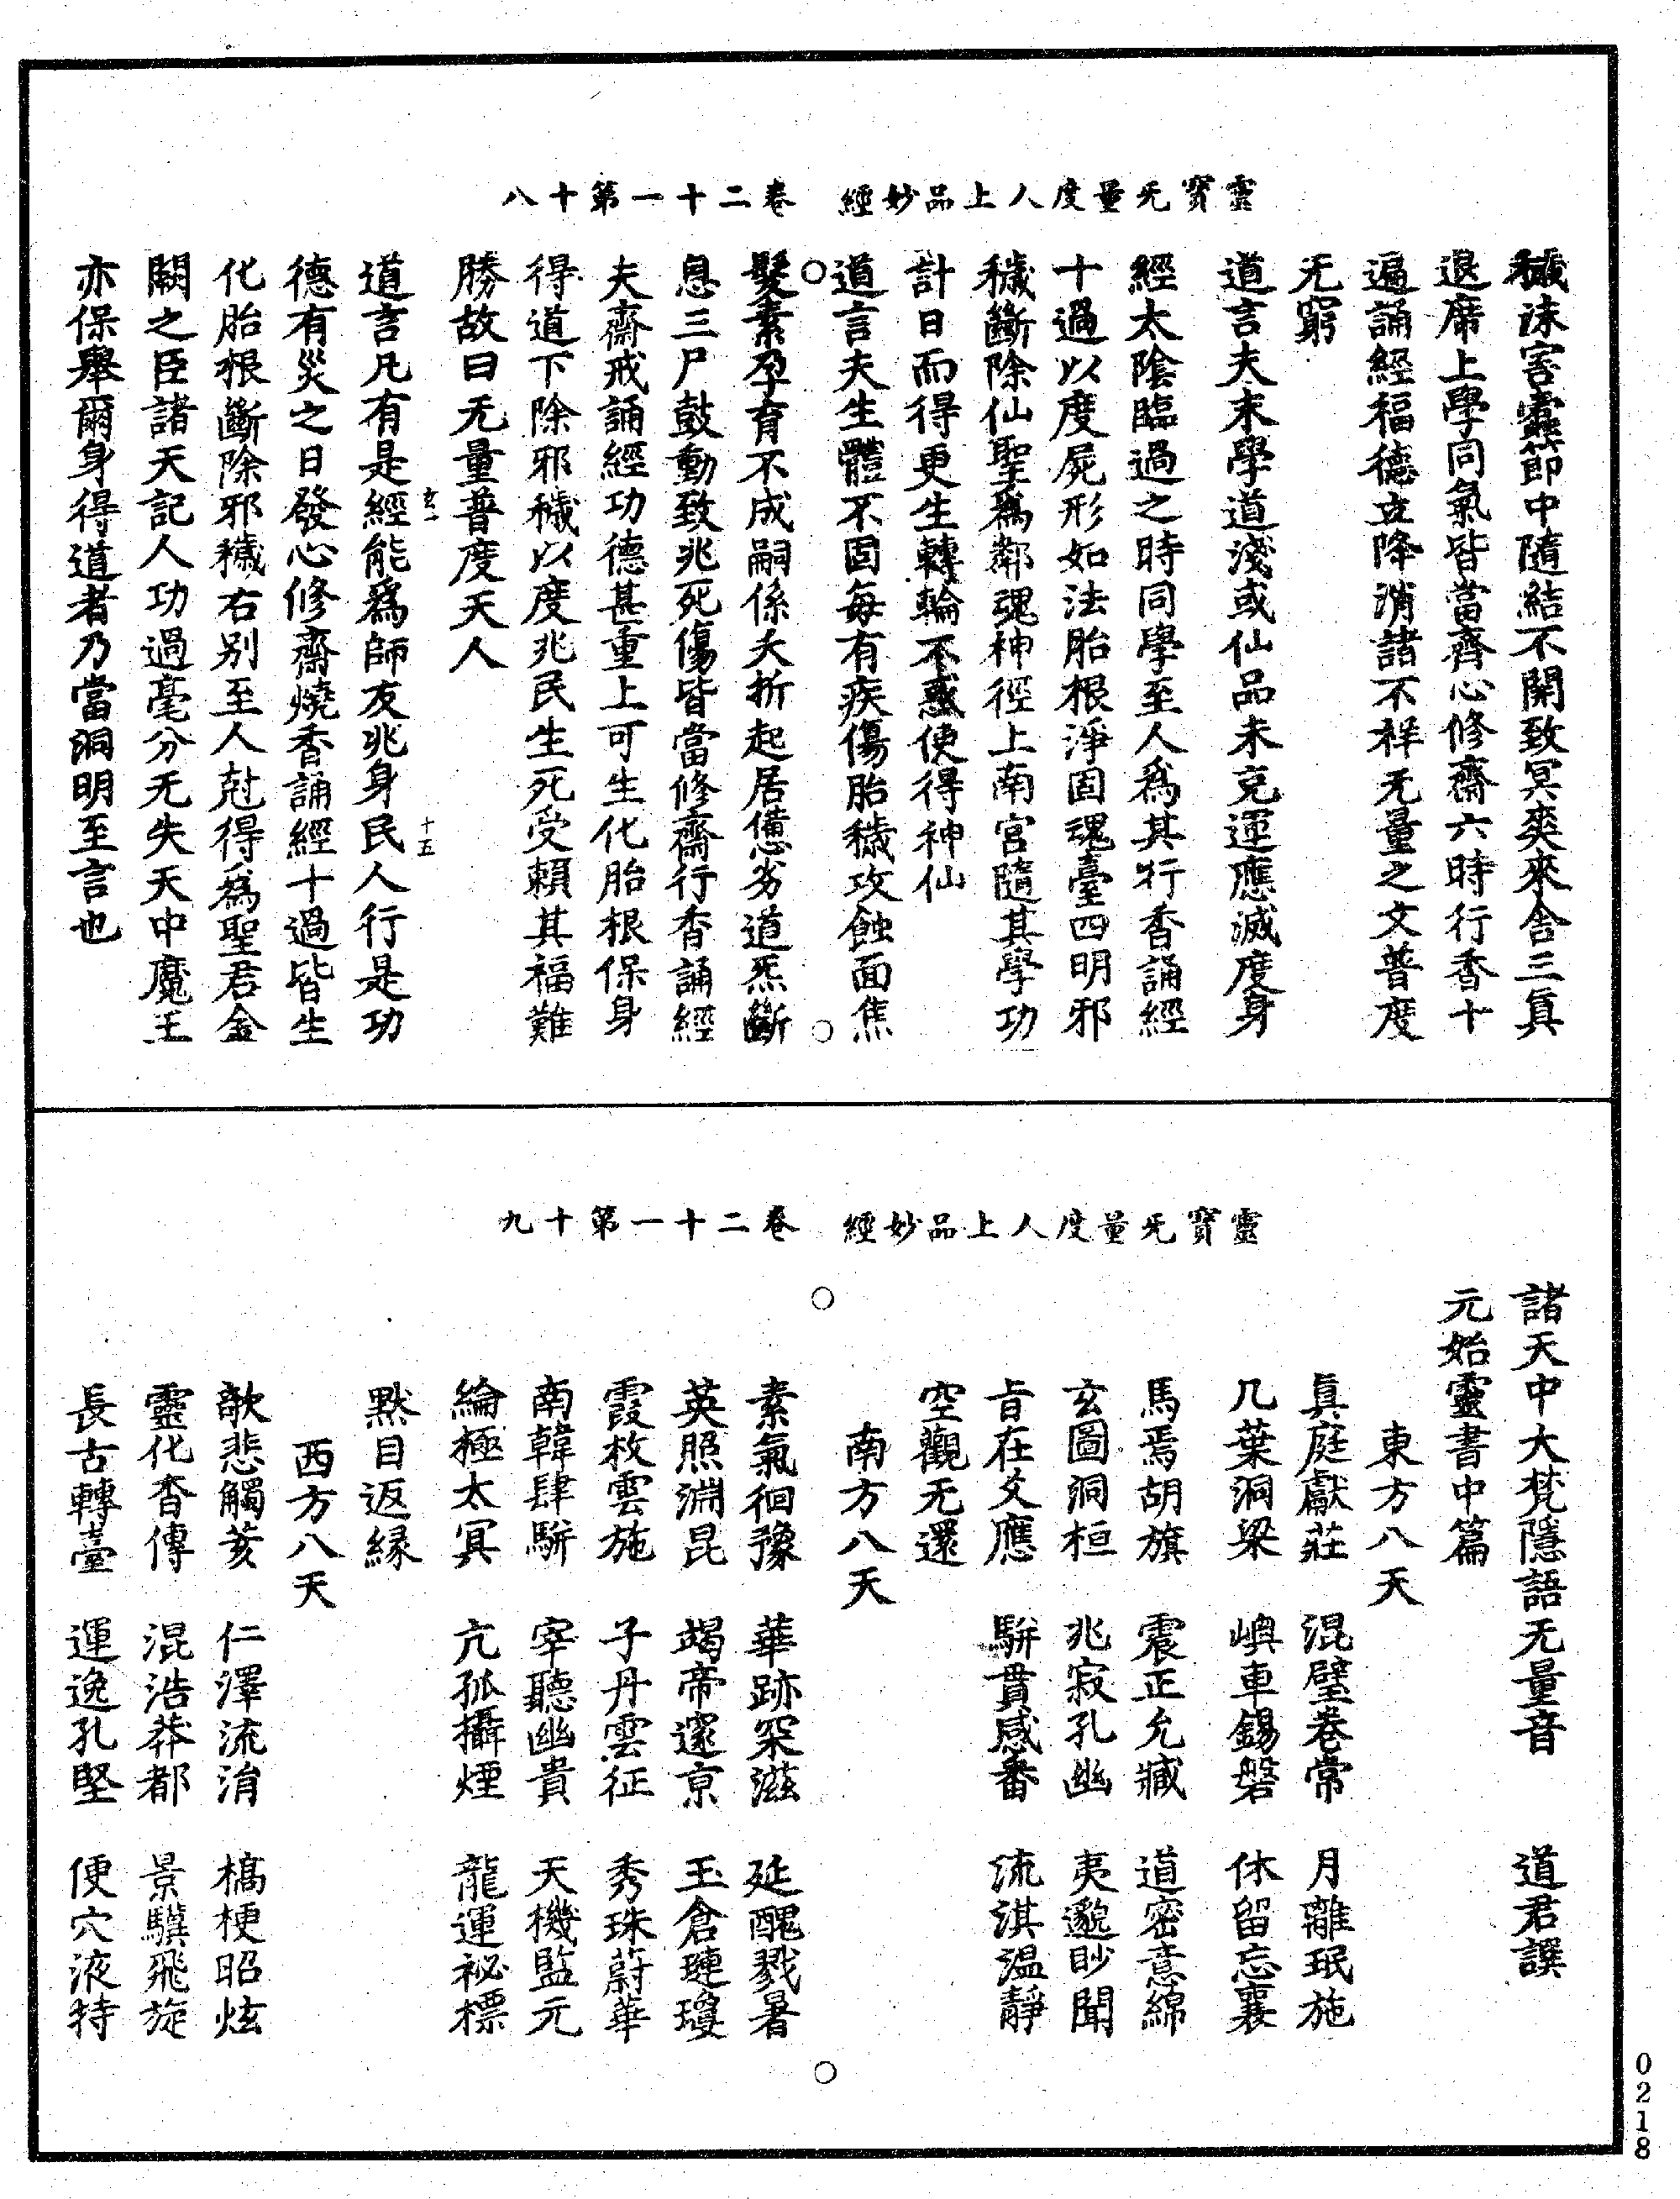 靈寶无量度人上品妙經　卷二十一第十八
穢沫害靈節中隨結不開致冥奕來舍三真
退席上學同氣皆當齊心修齋六時行香十
遍誦經福德立降消諸不祥无量之文普度
无窮
道言夫末學道淺或仙品未充運應滅度身
經太陰臨過之時同學至人爲其行香誦經
十過以度屍形如法胎根淨固魂臺四明邪
穢斷除仙聖爲鄰魂神徑上南宮隨其學功
計日而得更生轉輪不惑使得神仙
道言夫生體不固每有疾傷胎穢攻蝕面焦
髮素孕育不成嗣係夭折起居憊劣道炁斷
息三尸鼓動致兆死傷皆當修齋行香誦經
夫齋戒誦經功德甚重上可生化胎根保身
得道下除邪穢以度兆民生死受賴其福難
勝故曰无量普度天人
玄一　十五
道言凡有是經能爲師友兆身民人行是功
德有災之日發心修齋燒香誦經十過皆生
化胎根斷除邪穢右別至人尅得爲聖君金
闕之臣諸天記人功過毫分无失天中魔王
亦保舉爾身得道者乃當洞明至言也
靈寶无量度人上品妙經　卷二十一第十九
諸天中大梵隱語无量音　道君譔
元始靈書中篇
東方八天
真庭獻莊　混璧巷常　月離珉施
几葉洞梁　嶼車錫磐　休留忘襄
馬焉胡旗　震正允臧　道密意綿
玄圖洞桓　兆寂孔幽　夷邈眇聞
旨在爻應　駢貫感番　流淇温靜
空觀无還
南方八天
素氣徊豫　華跡罙滋　延醜戮暑
英照淵昆　竭帝邃京　玉倉璉瓊
霞枚雲施　子丹雲征　秀珠蔚華
南韓肆駢　宰聽幽貴　天機監元
綸極太冥　亢孤攝煙　龍運祕標
默目返緣
西方八天
歆悲觸荄　仁澤流渞　槁梗昭炫
靈化杳傳　混浩莽都　景驥飛旋
長古轉臺　運逸孔堅　便穴液特
0218